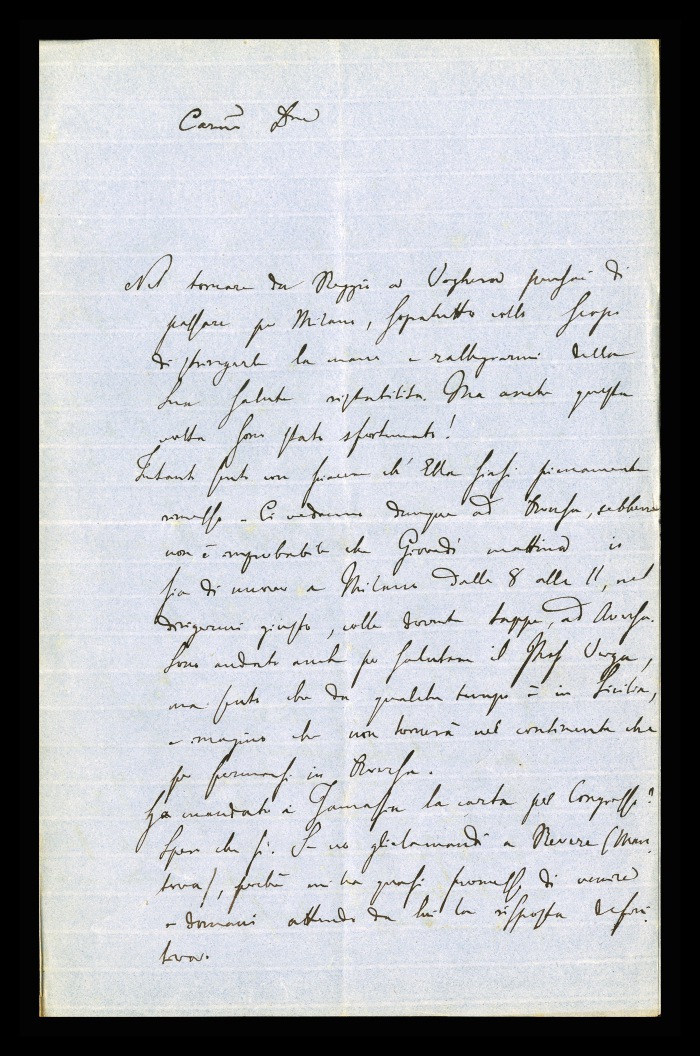 Carmo Dre
Nel tornare da Reggio a Voghera pensai di
passare per Milano, sopratutto collo scopo
di stringerle la mano e rallegrarmi della
Sua salute ristabilita. Ma anche questa
volta sono stato sfortunato!
Intanto sento con piacere ch' Ella siasi pienamente
rimesso - Ci vedremo dunque ad Aversa, sebbene
non è improbabile che Giovedì mattina io
sia di nuovo a Milano dalle 8 alle 11, nel
dirigermi giusto, colle dovute tappe, ad Aversa.
Sono andato anche per salutare il Prof Verga,
ma sento che da qualche tempo è in Sicilia,
e imagino che non tornerà nel continente che
per fermarsi in Aversa.
Ha mandato a Tamassia la carta pel Congresso?
Spero che sì. Se no gliela mandi a Revere (Man-
tova), perchè mi ha quasi promesso di venire
e domani attendo da lui la risposta defini-
tiva.